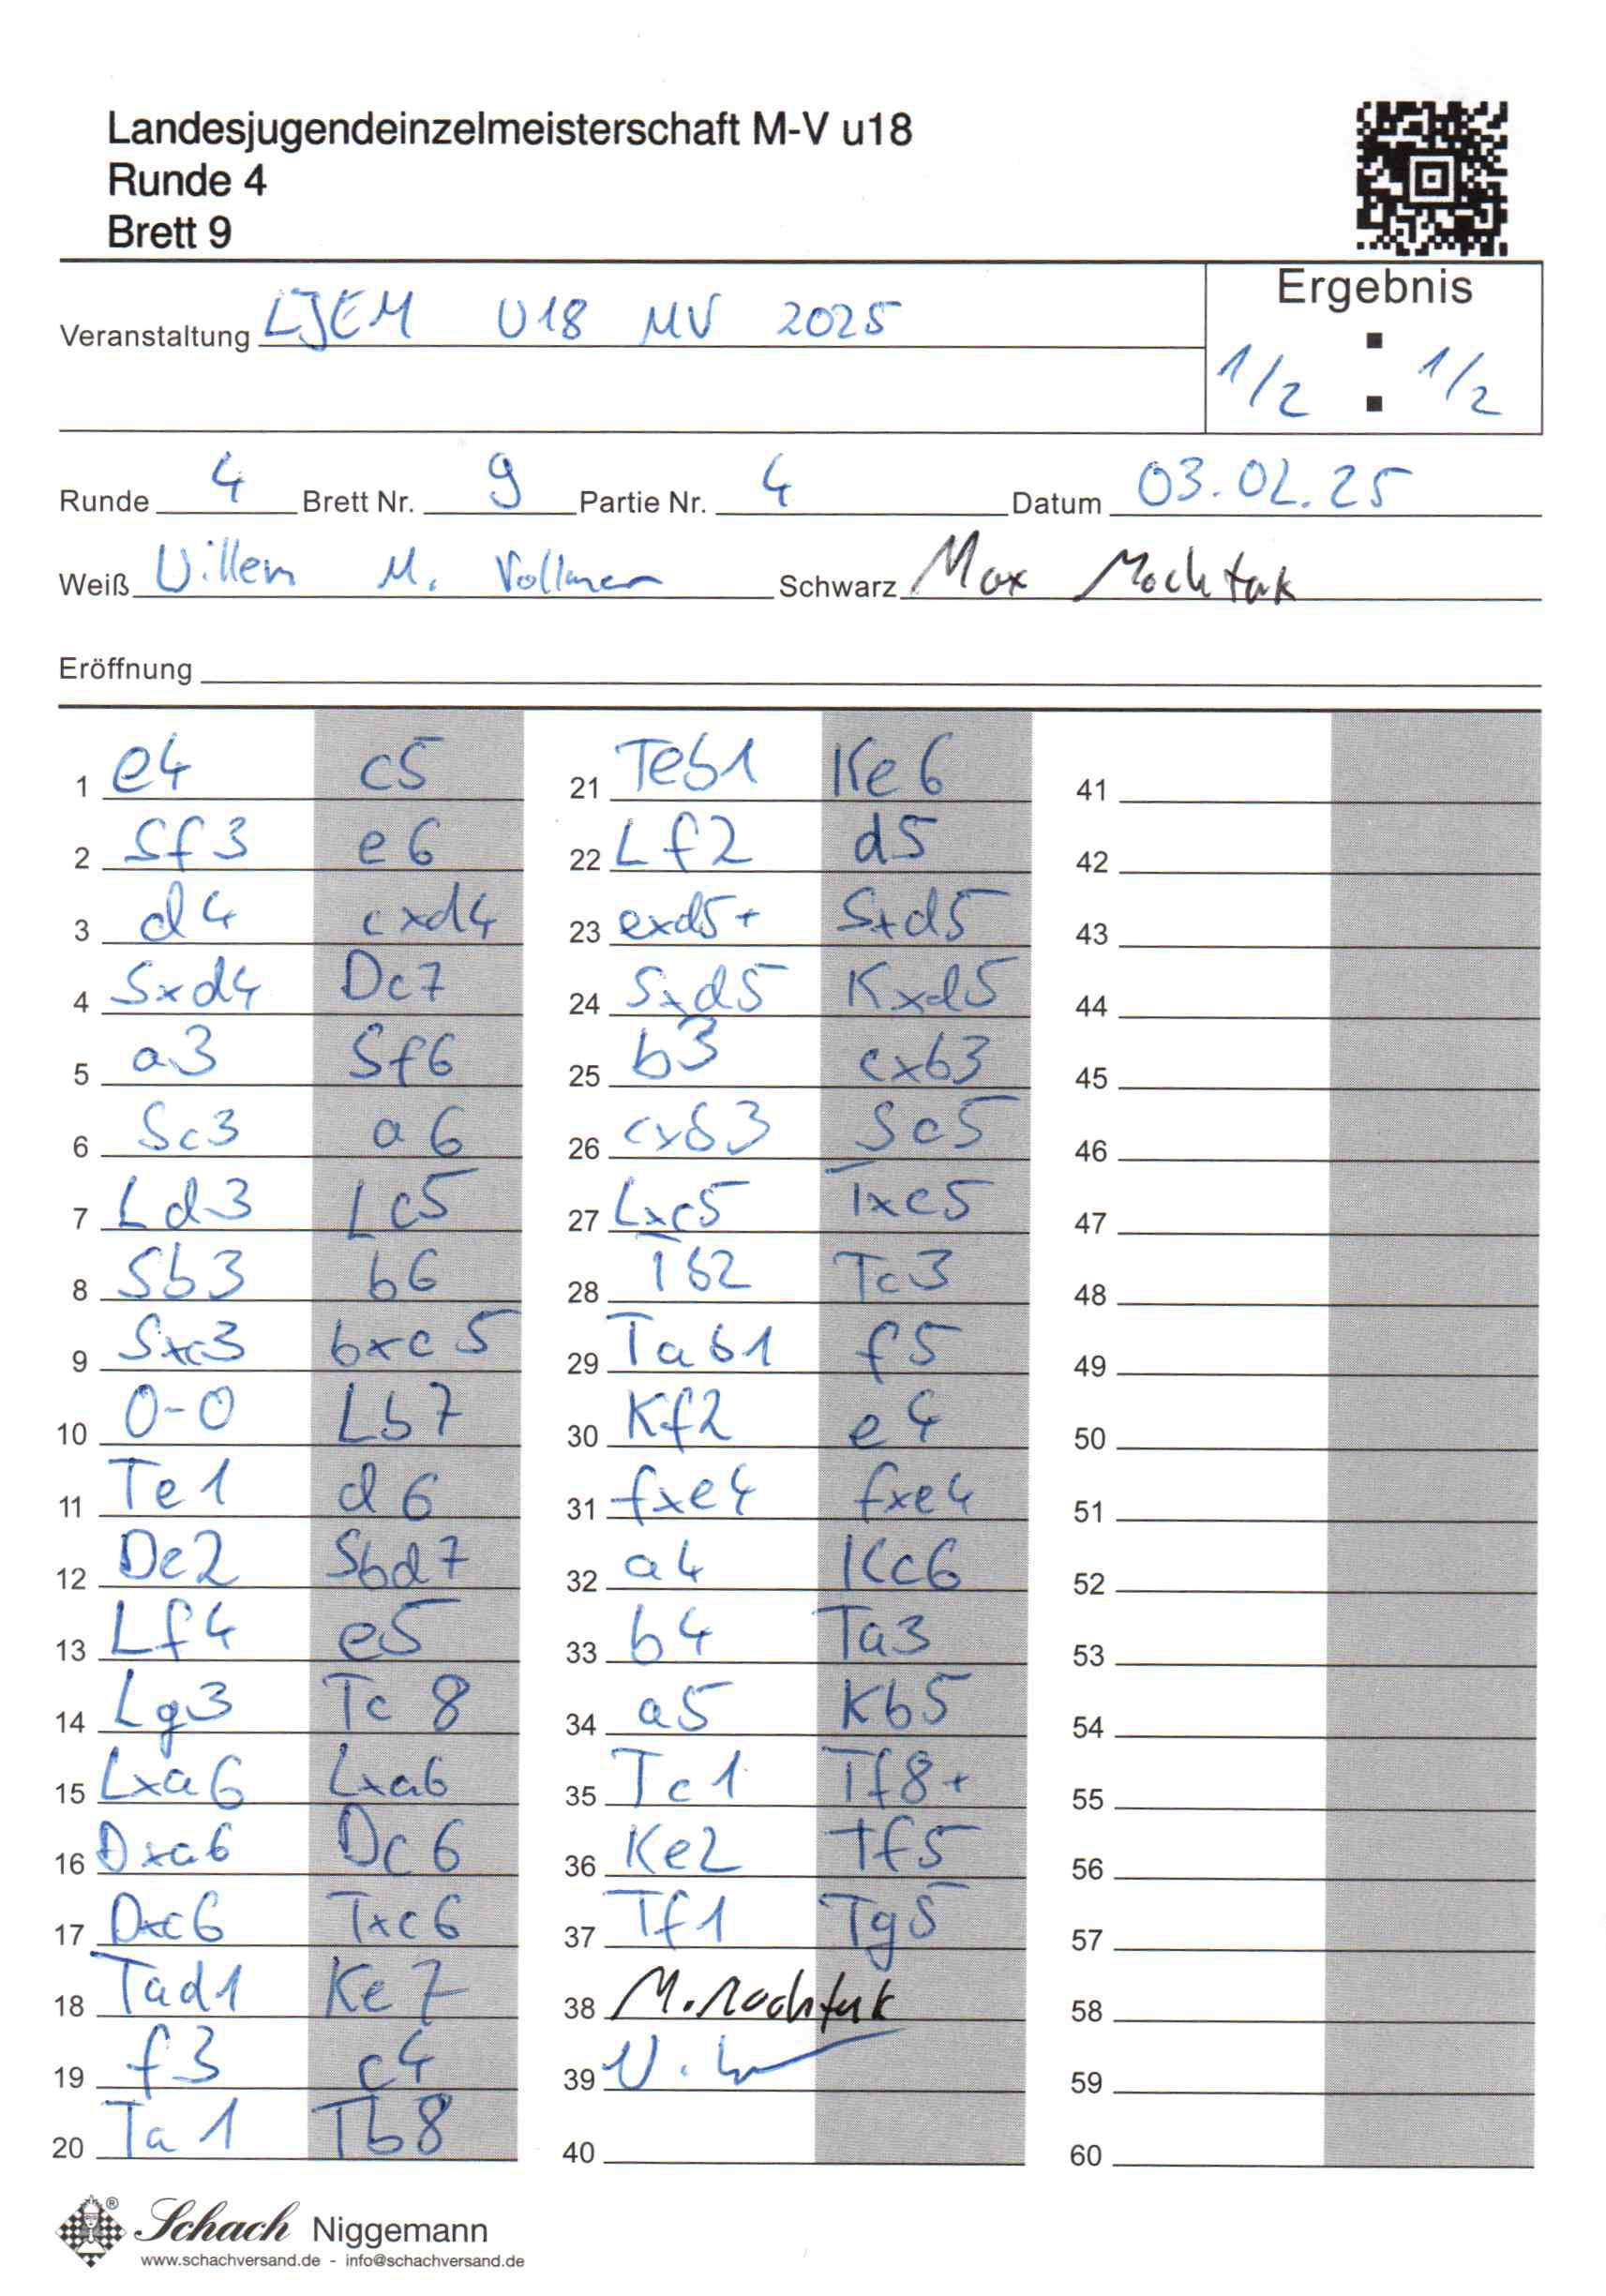 Landesjugendeinzelmeisterschaft M-V u18
Runde 4
Brett 9
Ergebnis
Veranstaltung LJEM U18 MV 2025
1/2 : 1/2
Runde 4 Brett Nr. 9 Partie Nr. 4 Datum 03.02.25
Weiß Willem M. Vollmer Schwarz Max Mochtak
Eröffnung
1 e4 c5
2 Sf3 e6
3 d4 cxd4
4 Sxd4 Dc7
5 a3 Sf6
6 Sc3 a6
7 Ld3 Lc5
8 Sb3 b6
9 Sxc3 bxc5
10 0-0 Lb7
11 Te1 d6
12 De2 Sbd7
13 Lf4 e5
14 Lg3 Tc8
15 Lxa6 Lxa6
16 Dxa6 Dc6
17 Dxc6 Txc6
18 Tad1 Ke7
19 f3 c4
20 Ta1 Tb8
21 Teb1 Ke6
22 Lf2 d5
23 exd5+ Sxd5
24 Sxd5 Kxd5
25 b3 cxb3
26 cxb3 Sc5
27 Lxc5 Txc5
28 Tb2 Tc3
29 Tab1 f5
30 Kf2 e4
31 fxe4 fxe4
32 a4 Kc6
33 b4 Ta3
34 a5 Kb5
35 Tc1 Tf8+
36 Ke2 Tf5
37 Tf1 Tg5
38 M. Mochtak
39
40
41
42
43
44
45
46
47
48
49
50
51
52
53
54
55
56
57
58
59
60
Schach Niggemann
www.schachversand.de - info@schachversand.de